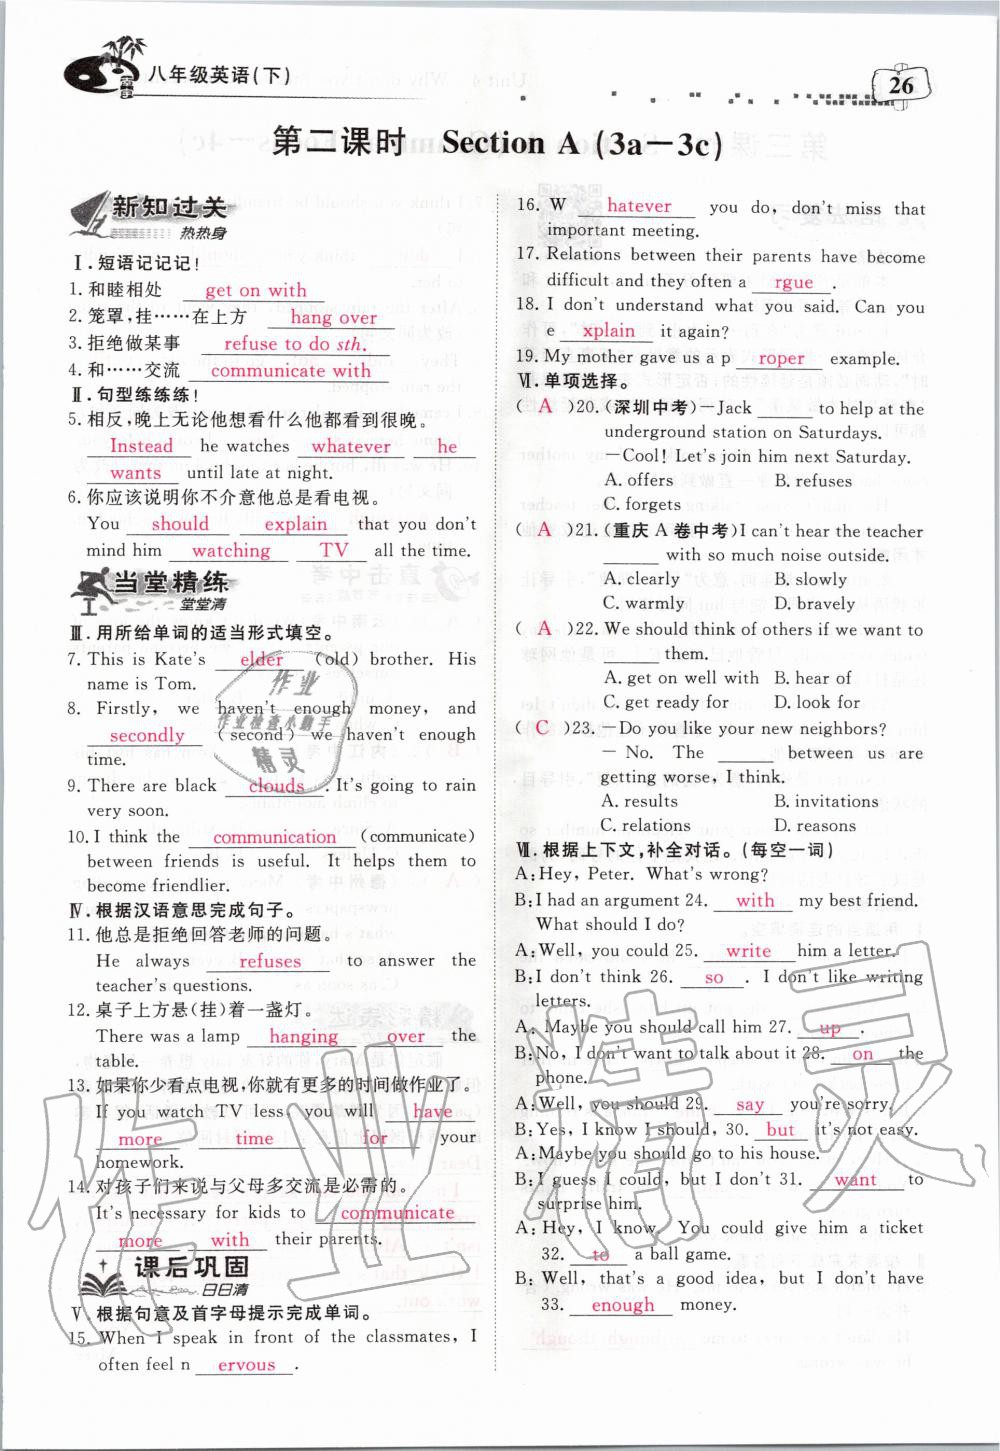 八年级英语(下)
26
第二课时 Section A (3a－3c)
新知过关
热热身
Ⅰ.短语记记记!
1.和睦相处 get on with
2.笼罩,挂……在上方 hang over
3.拒绝做某事 refuse to do sth.
4.和……交流 communicate with
Ⅱ.句型练练练!
5.相反,晚上无论他想看什么他都看到很晚。
Instead he watches whatever he
wants until late at night.
6.你应该说明你不介意他总是看电视。
You should explain that you don't
mind him watching TV all the time.
当堂精练
堂堂清
Ⅲ.用所给单词的适当形式填空。
7. This is Kate's elder (old) brother. His
name is Tom.
8. Firstly, we haven't enough money, and
secondly (second) we haven't enough
time.
9. There are black clouds . It's going to rain
very soon.
10. I think the communication (communicate)
between friends is useful. It helps them to
become friendlier.
Ⅳ.根据汉语意思完成句子。
11. 他总是拒绝回答老师的问题。
He always refuses to answer the
teacher's questions.
12. 桌子上方悬(挂)着一盏灯。
There was a lamp hanging over the
table.
13. 如果你少看点电视,你就有更多的时间做作业了。
If you watch TV less, you will have
more time for your
homework.
14. 对孩子们来说与父母多交流是必需的。
It's necessary for kids to communicate
more with their parents.
课后巩固
日日清
Ⅴ.根据句意及首字母提示完成单词。
15. When I speak in front of the classmates, I
often feel n ervous .
16. W hatever you do, don't miss that
important meeting.
17. Relations between their parents have become
difficult and they often a rgue .
18. I don't understand what you said. Can you
e xplain it again?
19. My mother gave us a p roper example.
Ⅵ.单项选择。
( A )20.(深圳中考)－Jack ______ to help at the
underground station on Saturdays.
－Cool! Let's join him next Saturday.
A. offers B. refuses
C. forgets
( A )21.(重庆A卷中考)I can't hear the teacher
______ with so much noise outside.
A. clearly B. slowly
C. warmly D. bravely
( A )22. We should think of others if we want to
______ them.
A. get on well with B. hear of
C. get ready for D. look for
( C )23. －Do you like your new neighbors?
－No. The ______ between us are
getting worse, I think.
A. results B. invitations
C. relations D. reasons
Ⅶ.根据上下文,补全对话。(每空一词)
A: Hey, Peter. What's wrong?
B: I had an argument 24. with my best friend.
What should I do?
A: Well, you could 25. write him a letter.
B: I don't think 26. so . I don't like writing
letters.
A: Maybe you should call him 27. up .
B: No, I don't want to talk about it 28. on the
phone.
A: Well, you should 29. say you're sorry.
B: Yes, I know I should, 30. but it's not easy.
A: Maybe you should go to his house.
B: I guess I could, but I don't 31. want to
surprise him.
A: Hey, I know. You could give him a ticket
32. to a ball game.
B: Well, that's a good idea, but I don't have
33. enough money.
作业
作业检查小助手
精灵
作业精灵